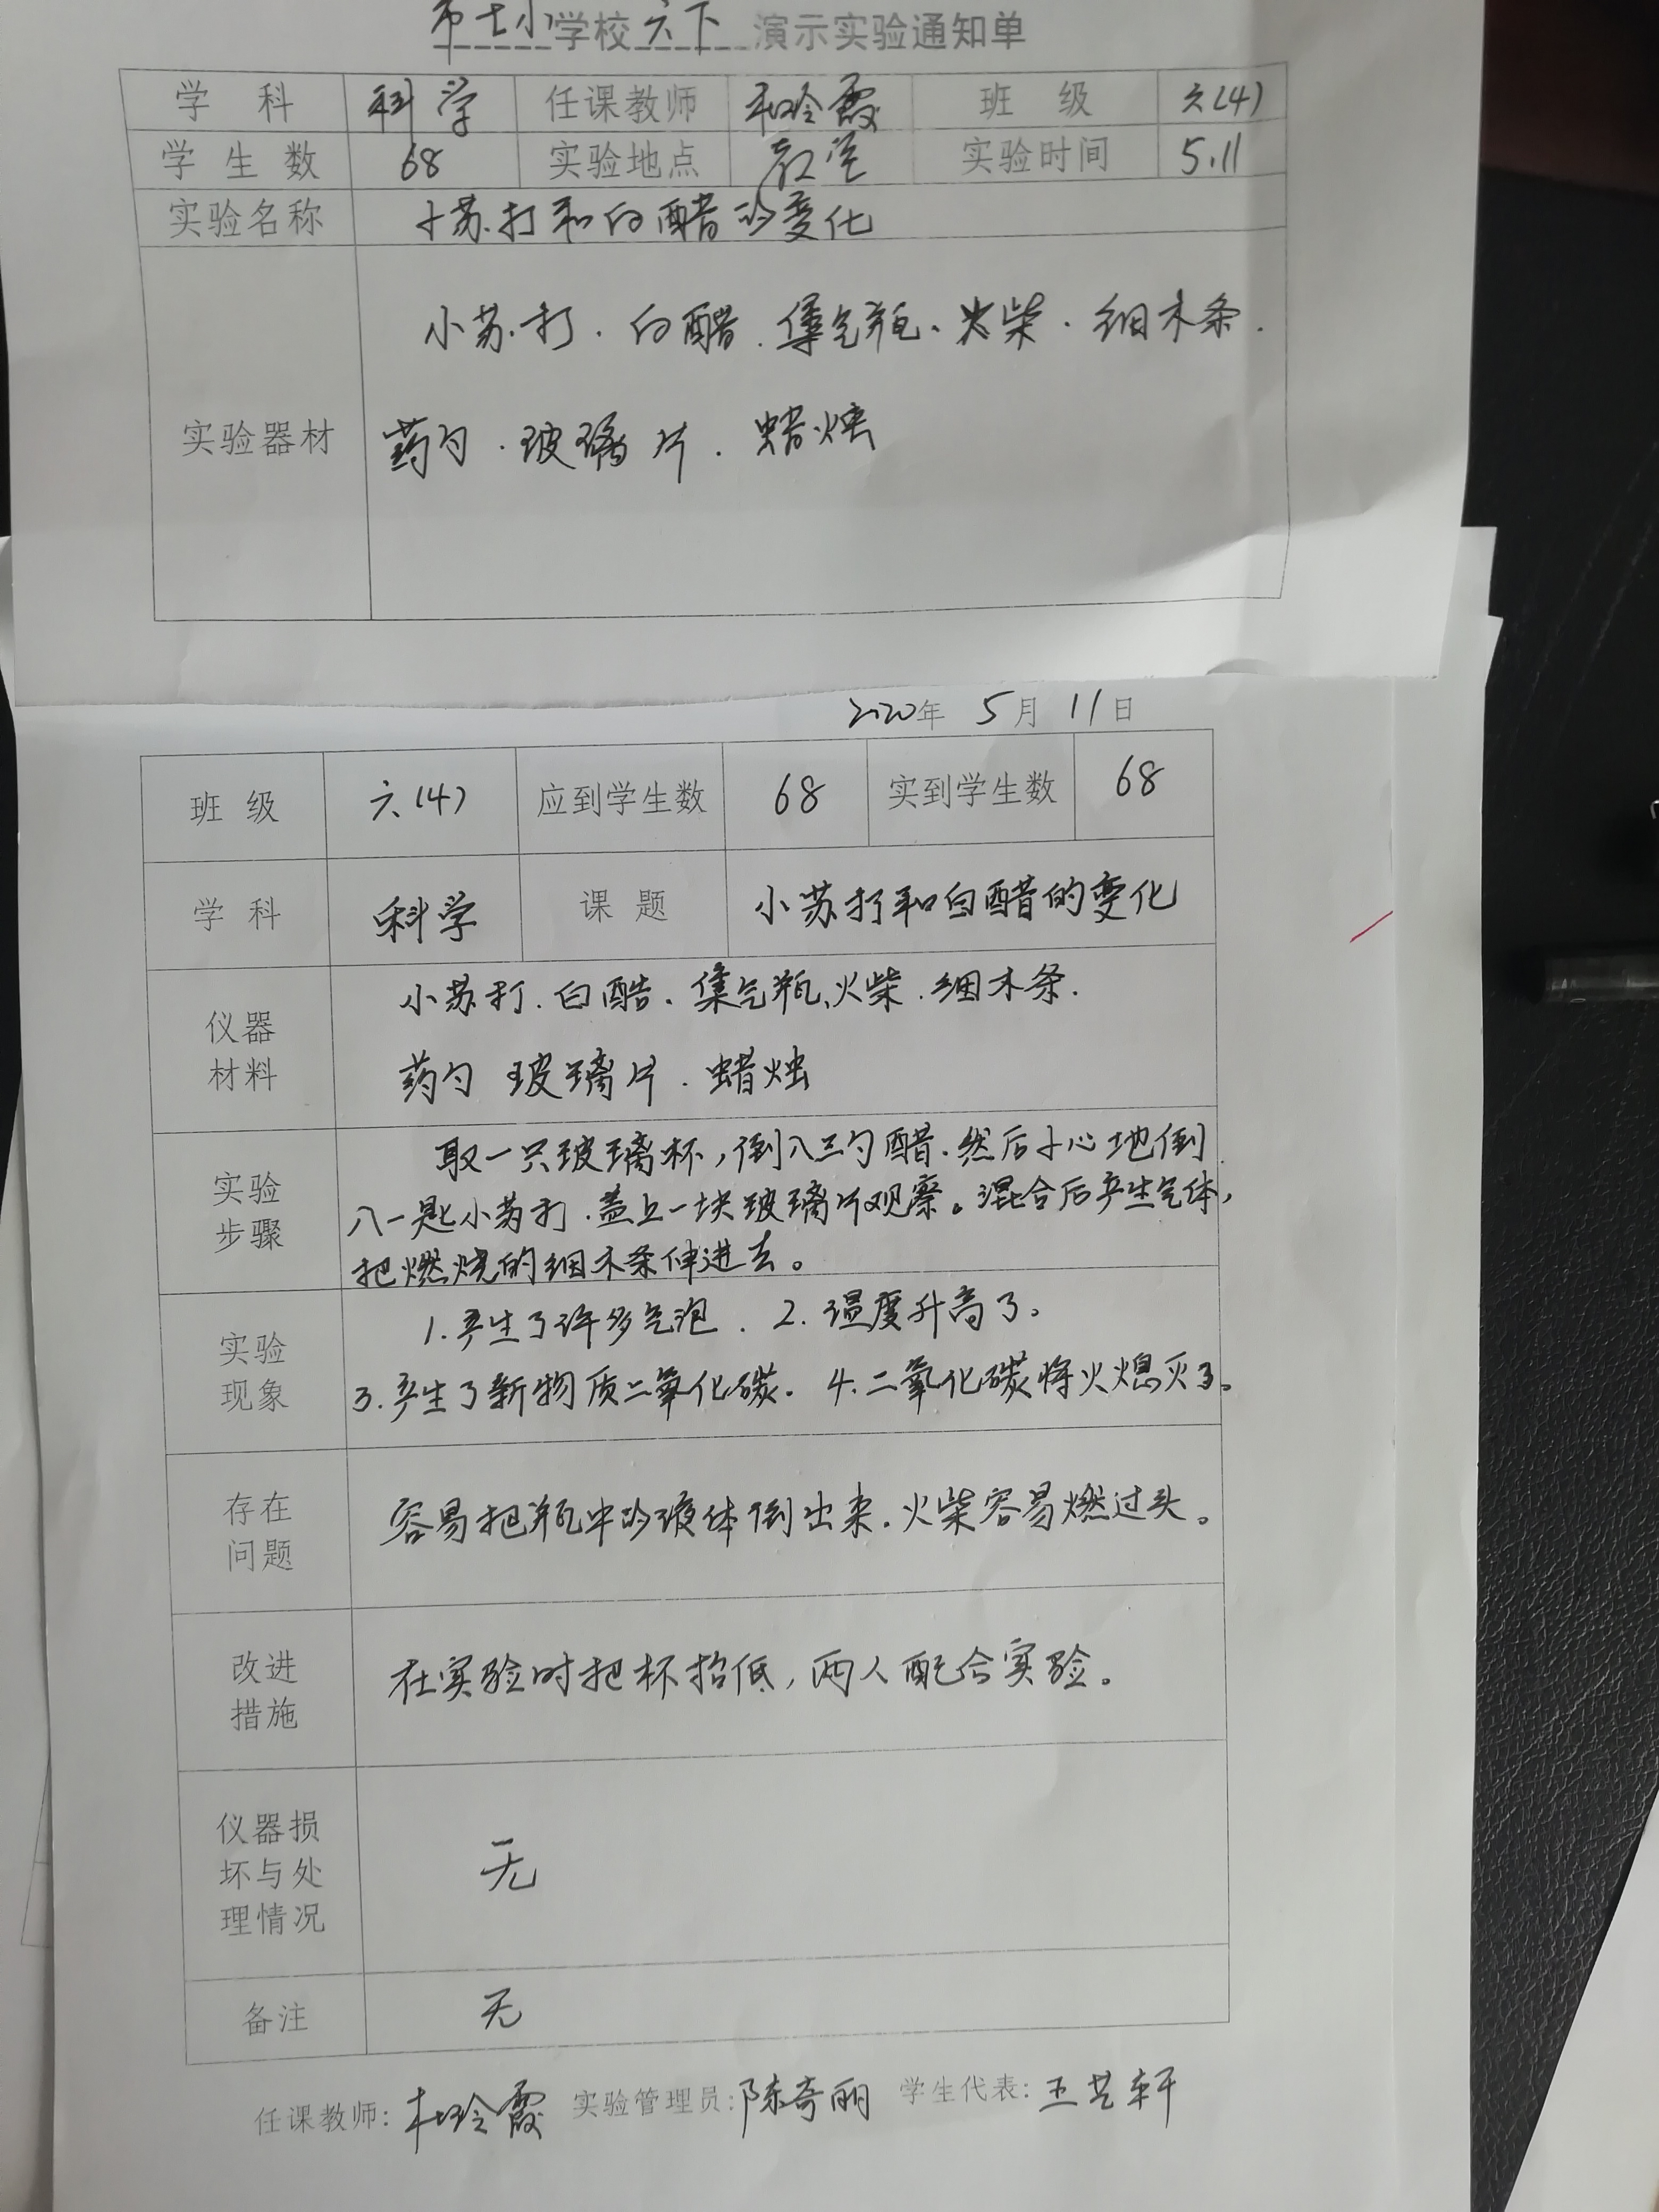 市七小学校六下演示实验通知单
学 科 科学 任课教师 和玲霞 班 级 六(4)
学生数 68 实验地点 教室 实验时间 5.11
实验名称 小苏打和白醋的变化
小苏打．白醋．集气瓶、火柴．细木条．
实验器材 药勺．玻璃片．蜡烛
2020年 5月 11日
班 级 六(4) 应到学生数 68 实到学生数 68
学 科 科学 课 题 小苏打和白醋的变化
仪器 小苏打．白醋．集气瓶、火柴．细木条．
材料 药勺 玻璃片．蜡烛
取一只玻璃杯，倒入三勺醋．然后小心地倒
实验
步骤
入一匙小苏打．盖上一块玻璃片观察。混合后产生气体，
把燃烧的细木条伸进去。
实验 1.产生了许多气泡．2.温度升高了。
现象 3.产生了新物质二氧化碳．4.二氧化碳将火熄灭了。
存在
问题
容易把瓶中的液体倒出来．火柴容易燃过头。
改进
措施
在实验时把杯抬低，两人配合实验。
仪器损
坏与处
理情况
无
备注 无
任课教师：和玲霞 实验管理员：陈奇丽 学生代表：王艺轩